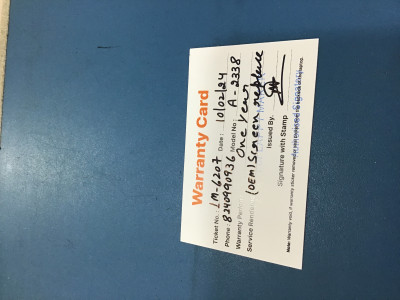 Warranty Card
Ticket No.: LM-6207 Date: 10/02/24
Phone: 8240990936 Model No: A-2338
Warranty Period One year
Service Remark (OEM) Screen replace
Issued By.
Signature with Stamp
Note: Warranty void, if warranty sticker removed